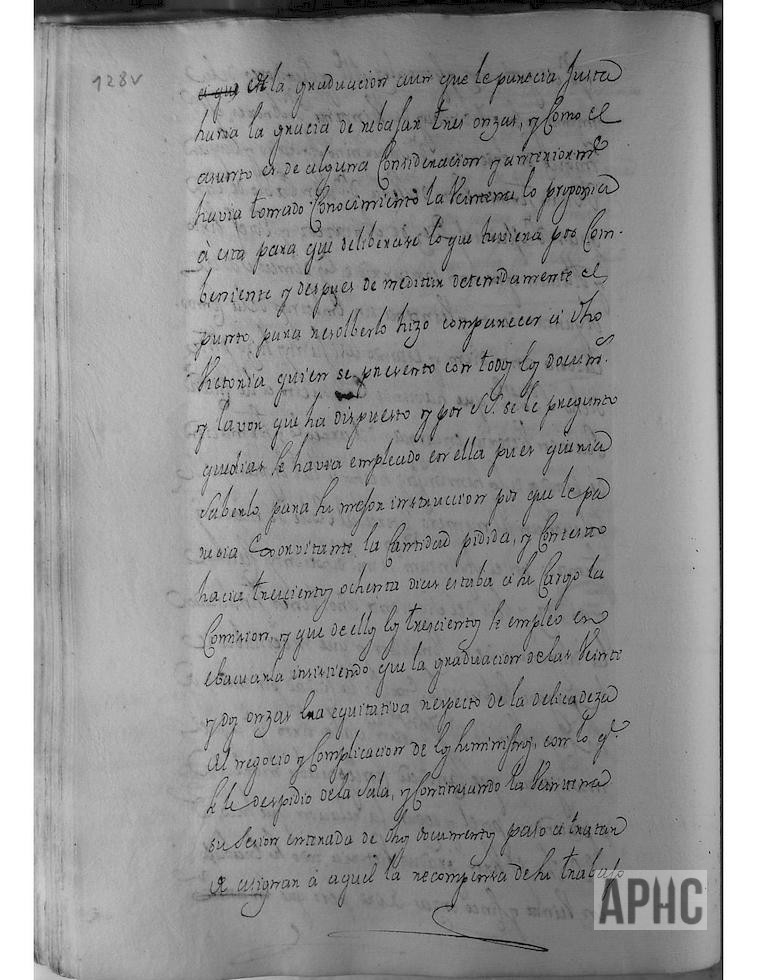 128v
a que de la graduacion aun que le parecia Justa
haria la gracia de rebajar tres onzas, y Como el
asunto es de alguna Consideracion y anteriormte
havia tomado Conocimiento la Veintena lo proponia
à esta para que deliberase lo que tuviera por Com-
beniente y despues de meditar detenidamente el
punto para resolberlo hizo comparecer à dho
Victoria quien se presento con todos los docums.
y labor que ha dispuesto y por SS. se le pregunto
que dias se havia empleado en ella pues queria
Saberlo para su mejor instruccion por que le pa
recia Exorvitante la Cantidad pidida, y Contesto
hacia trescientos ochenta dias estaba à su Cargo la
Comision, y que de ellos los trescientos se empleo en
ebacuarla insistiendo que la graduacion de las Veinte
y dos onzas era equitativa respecto de la delicadeza
del negocio y Complicacion de los suministros, con lo q.e
se le despidio de la Sala, y Continuando la Veintena
su Sesion enterada de dhos documentos paso à tratar
de asignar à aquel la recompensa de su trabajo
APHC